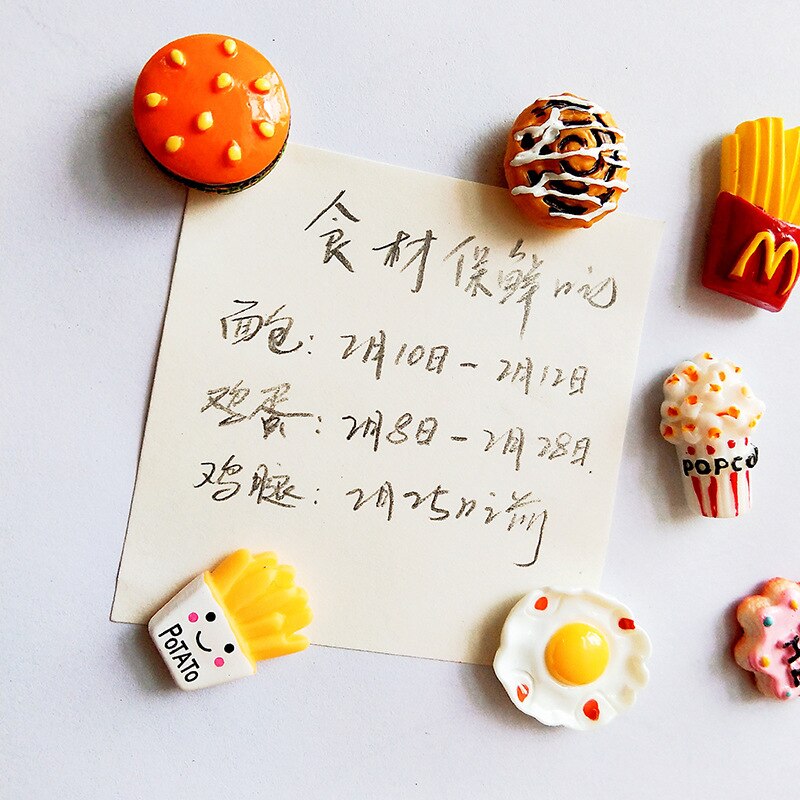 食材保鲜记
面包: 2月10日-2月12日
鸡蛋: 2月8日-2月28日
鸡腿: 2月25日之前
POTATO
M
POPCO